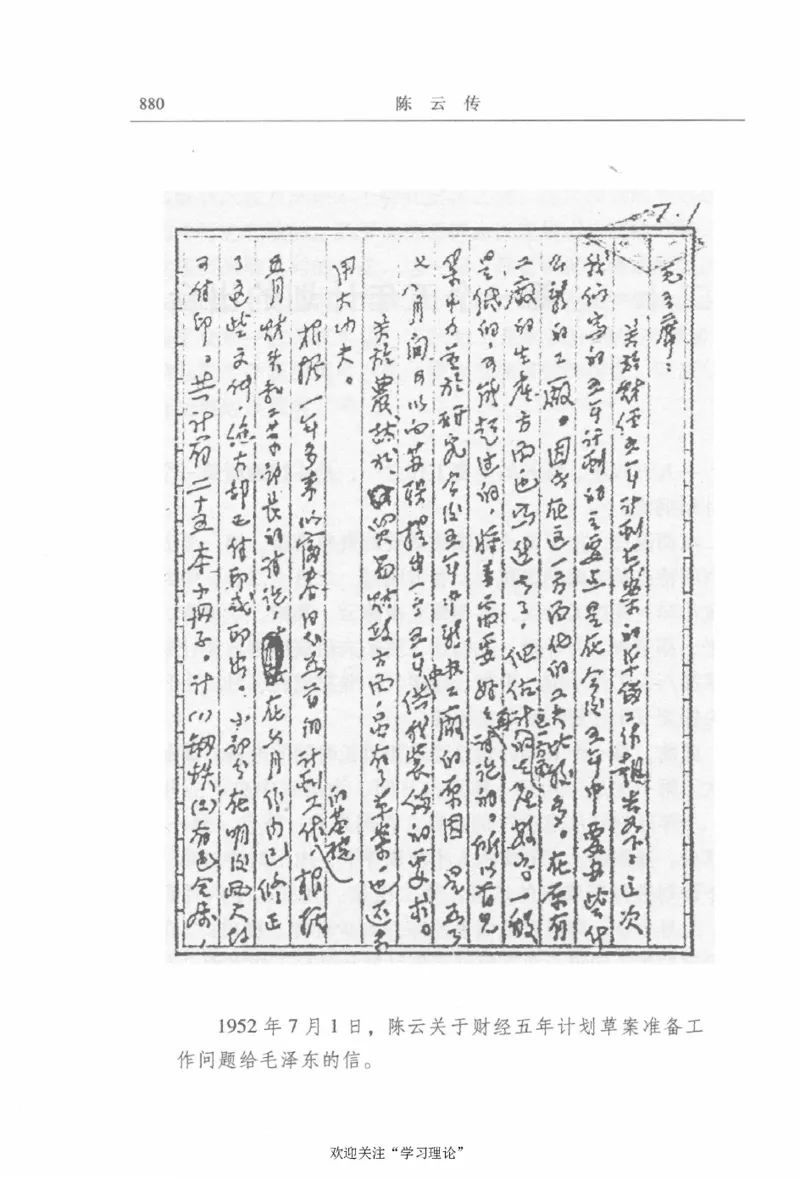 880
陈云传
7.1
毛主席：
关于财经五年计划草案的准备工作报告如下：这次
我们写的五年计划的主要点是在今后五年中要办些什
么新的工厂。因此在这一方面化的工夫比较多。在原有
工厂的生产方面也写进去了，但估计这一方面的生产数字，一般
是低的，可能超过的，将来需要好好再讨论的。所以首先
集中力量于研究今后五年中新办工厂的原因，是为了
七八月间可以向苏联提出一个五年中供我装备的要求。
关于农林水贸易财政方面，虽有了草案，也还多
用大功夫。
根据一年多来以富春同志为首的计划工作的基础，根据
五月财委教工其部长的讨论，在六月份内已修正
了这些文件，绝大部正付印或印出。小部分在明后两天始
可付印。共计有二十五本小册子。计(1)钢铁(2)有色金属，
1952年7月1日，陈云关于财经五年计划草案准备工
作问题给毛泽东的信。
欢迎关注“学习理论”